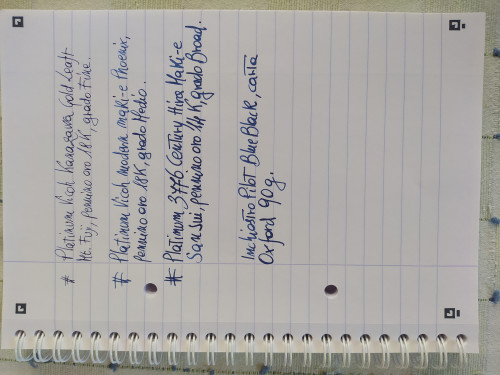 # Platinum Kioh Kanazawa Gold Leaf-
Mt. Fuji, pennino oro 18K, grado Fine.
# Platinum Kioh modern maki-e Phoenix,
pennino oro 18K, grado Medio.
# Platinum 3776 Century Hira Maki-e
San Sui, pennino oro 14K, grado Broad.
Inchiostro Pilot Blue Black, carta
Oxford 90g.